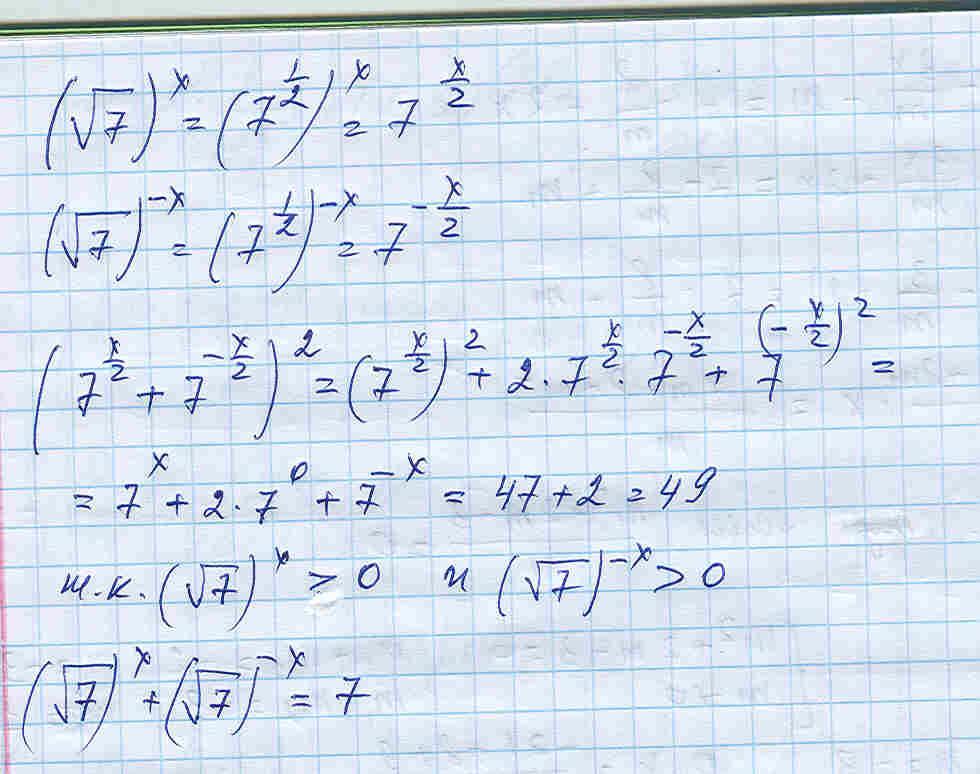 (√7)^x = (7^(1/2))^x = 7^(x/2)
(√7)^(-x) = (7^(1/2))^(-x) = 7^(-x/2)
(7^(x/2) + 7^(-x/2))^2 = (7^(x/2))^2 + 2·7^(x/2)·7^(-x/2) + 7^((-x/2)^2) =
= 7^x + 2·7^0 + 7^(-x) = 47 + 2 = 49
т.к. (√7)^x > 0 и (√7)^(-x) > 0
(√7)^x + (√7)^(-x) = 7